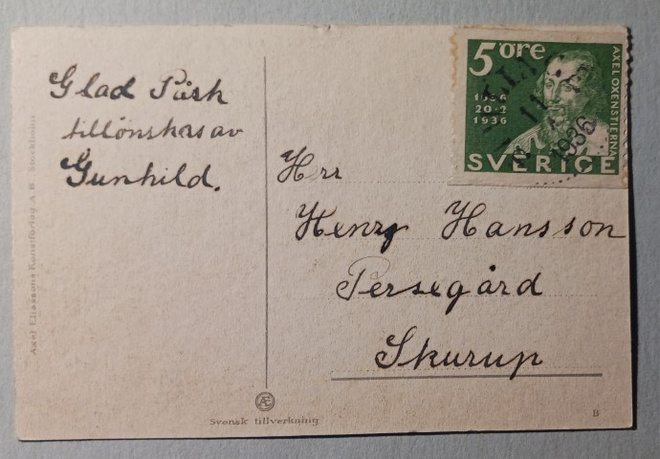 Glad Påsk
tillönskas av
Gunhild.
Axel Eliassons Konstförlag A. B. Stockholm
5 öre
1636
20-2
1936
AXEL OXENSTIERNA
SVERIGE
11
1936
Herr
Henry Hansson
Persegård
Skurup
Æ
Svensk tillverkning
B